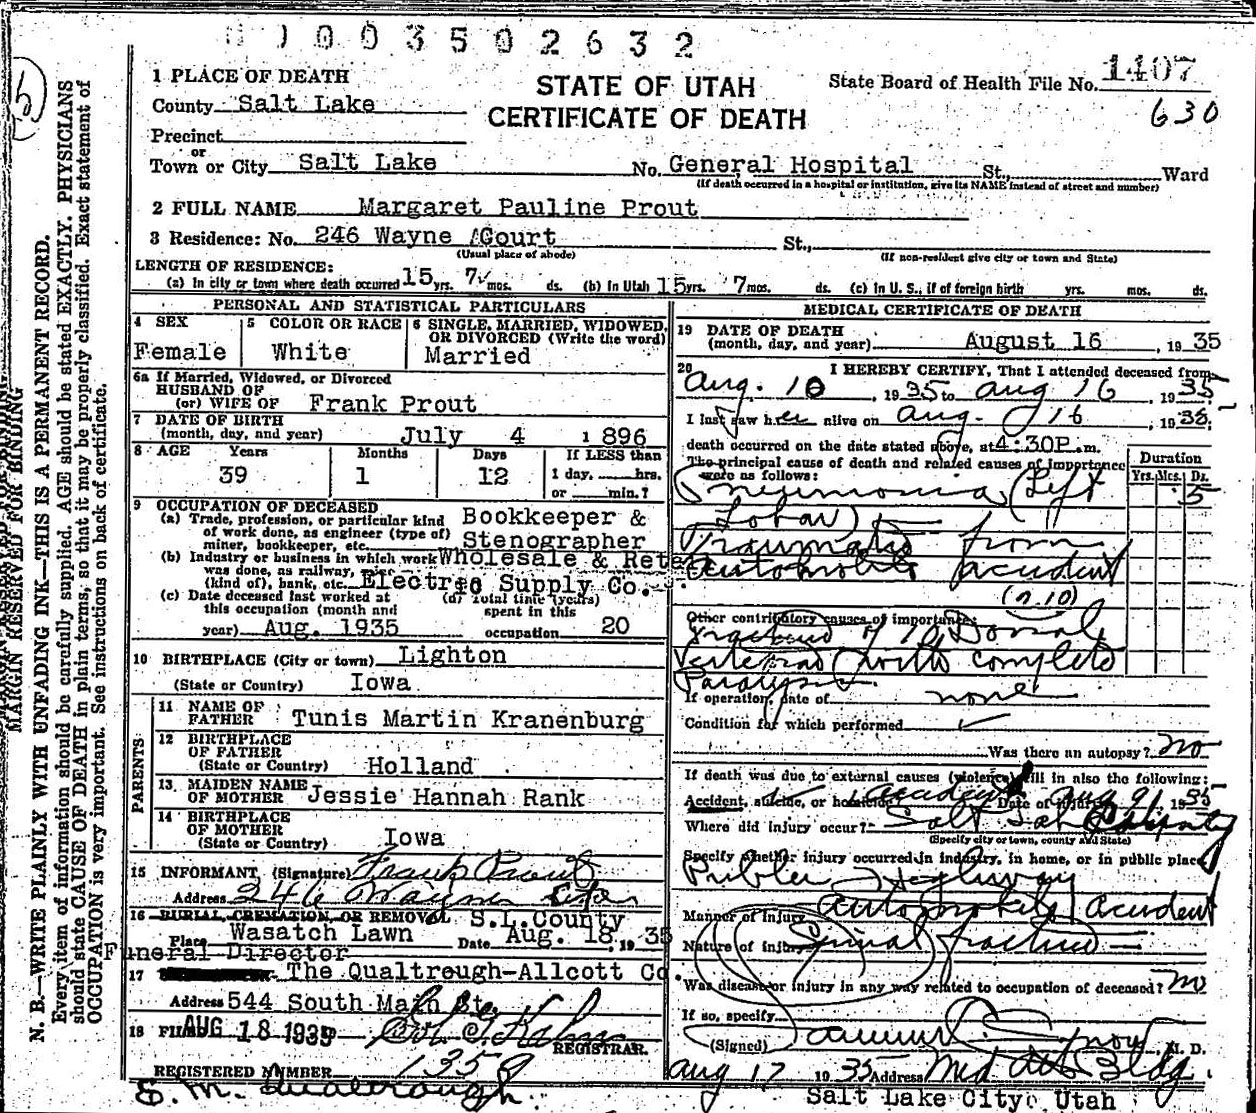 0003502632
1 PLACE OF DEATH
STATE OF UTAH
CERTIFICATE OF DEATH
State Board of Health File No. 1407
630
County Salt Lake
Precinct
or
Town or City Salt Lake No. General Hospital St., Ward
(If death occurred in a hospital or institution, give its NAME instead of street and number)
2 FULL NAME Margaret Pauline Prout
3 Residence: No. 246 Wayne Court St.,
(Usual place of abode) (If non-resident give city or town and State)
LENGTH OF RESIDENCE:
(a) In city or town where death occurred 15 yrs. 7 mos. ds. (b) In Utah 15 yrs. 7 mos. ds. (c) In U. S., if of foreign birth yrs. mos. ds.
PERSONAL AND STATISTICAL PARTICULARS
4 SEX Female
5 COLOR OR RACE White
6 SINGLE, MARRIED, WIDOWED, OR DIVORCED (Write the word) Married
6a If Married, Widowed, or Divorced
HUSBAND OF
(or) WIFE OF Frank Prout
7 DATE OF BIRTH
(month, day, and year) July 4 1896
8 AGE Years Months Days If LESS than
39 1 12 1 day, hrs.
or min.?
9 OCCUPATION OF DECEASED
(a) Trade, profession, or particular kind of work done, as engineer (type of) miner, bookkeeper, etc. Bookkeeper & Stenographer
(b) Industry or business in which work was done, as railway, (kind of), bank, etc. Wholesale & Reta Electric Supply Co.
(c) Date deceased last worked at this occupation (month and year) Aug. 1935
(d) Total time (years) spent in this occupation 20
10 BIRTHPLACE (City or town) Lighton
(State or Country) Iowa
PARENTS
11 NAME OF FATHER Tunis Martin Kranenburg
12 BIRTHPLACE OF FATHER
(State or Country) Holland
13 MAIDEN NAME OF MOTHER Jessie Hannah Rank
14 BIRTHPLACE OF MOTHER
(State or Country) Iowa
15 INFORMANT (Signature) Frank Prout
Address 246 Wayne
16 BURIAL, CREMATION, OR REMOVAL S.L. County
Place Wasatch Lawn Date Aug. 18, 1935
Funeral Director
17 The Qualtrough-Allcott Co.
Address 544 South Main St.
18 FILED AUG 18 1935
REGISTRAR
REGISTERED NUMBER 1358
E. M. Qualtrough.
MEDICAL CERTIFICATE OF DEATH
19 DATE OF DEATH
(month, day, and year) August 16, 1935
20 I HEREBY CERTIFY, That I attended deceased from
Aug. 10, 1935 to Aug 16, 1935
I last saw her alive on Aug. 16, 1935;
death occurred on the date stated above, at 4:30P.m.
The principal cause of death and related causes of importance were as follows:
Duration
Yrs. Mcs. Ds.
Pneumonia (Left 5
Lobar)
Traumatic from
Automobile accident
Other contributory causes of importance:
Fracture of 10 Dorsal
Vertebrae with complete
Paralysis.
If operation, date of none
Condition for which performed
Was there an autopsy? No
If death was due to external causes (violence) fill in also the following:
Accident, suicide, or homicide accident Date of injury Aug 9, 1935
Where did injury occur? Salt Lake County
(Specify city or town, county and State)
Specify whether injury occurred in industry, in home, or in public place
Public Highway
Manner of injury Automobile accident
Nature of injury Spinal fracture
Was disease or injury in any way related to occupation of deceased? No
If so, specify
(Signed) M. D.
Aug 17 1935 Address Med Arts Bldg.
Salt Lake City, Utah
MARGIN RESERVED FOR BINDING
N. B.—WRITE PLAINLY WITH UNFADING INK—THIS IS A PERMANENT RECORD.
Every item of information should be carefully supplied. AGE should be stated EXACTLY. PHYSICIANS
should state CAUSE OF DEATH in plain terms, so that it may be properly classified. Exact statement of
OCCUPATION is very important. See instructions on back of certificate.